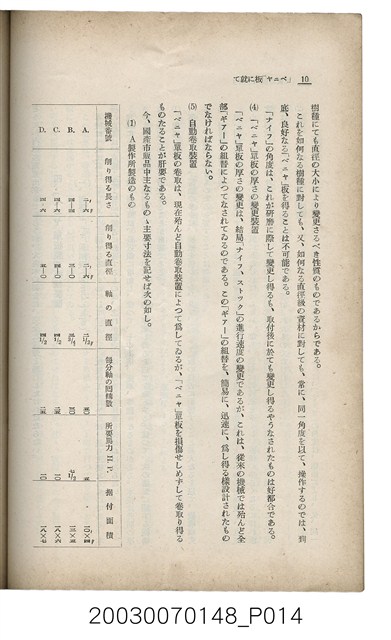 10 「ベニヤ」板に就て
樹種にても直徑の大小により變更さるべき性質のものであるからである。
これを如何なる樹種に對しても、又、如何なる直徑後の資材に對しても、常に、同一角度を以て、操作するのでは、到
底、良好なる「ベニヤ」板を得ることは不可能である。
「ナイフ」の角度は、これが研磨に際して變更し得るも、取付後に於ても變更し得るやうなされたものは好都合である。
(4) 「ベニヤ」單板の厚さの變更裝置
「ベニヤ」單板の厚さの變更は、結局「ナイフ、ストック」の進行速度の變更であるが、これは、從來の機械では殆んど全
部「ギアー」の組替によつてなされてゐるのである。この「ギアー」の組替を、簡易に、迅速に、爲し得る樣設計されたもの
でなければならない。
(5) 自動卷取裝置
「ベニヤ」單板の卷取は、現在殆んど自動卷取裝置によつて爲してゐるが、「ベニヤ」單板を損傷せしめずして卷取り得る
ものたることが肝要である。
今、國産市販品中主なるものゝ主要寸法を記せば次の如し。
(1) A製作所製造のもの
機械番號 削り得る長さ 削り得る直徑 軸の直徑 每分軸の回轉數 所要馬力 H.P. 据付面積
A.
B.
C.
D.
20030070148_P014